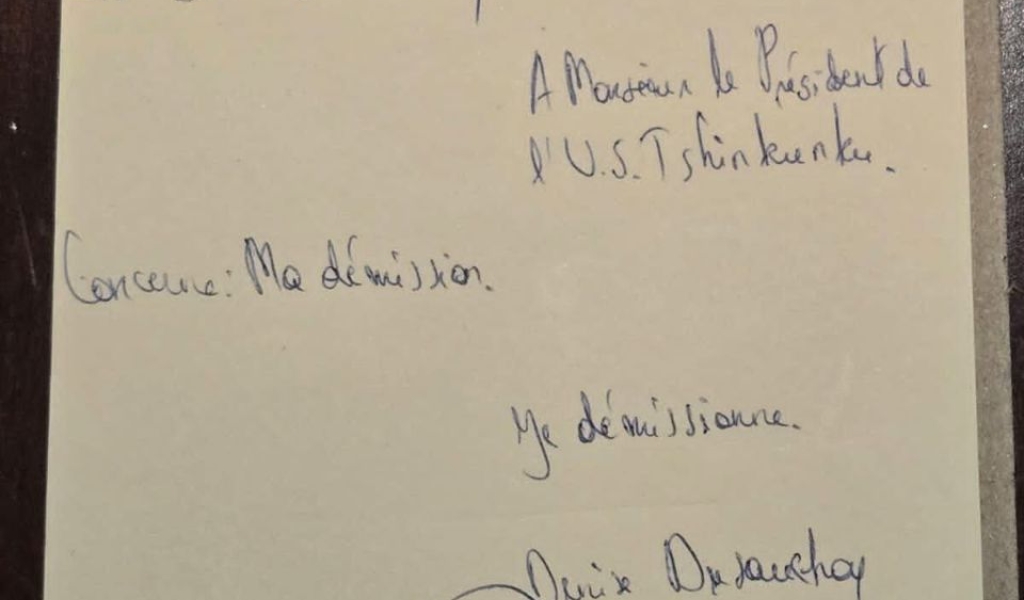 A Monsieur le Président de
l'U.S.Tshinkunku.
Concerne: Ma démission.
Je démissionne.